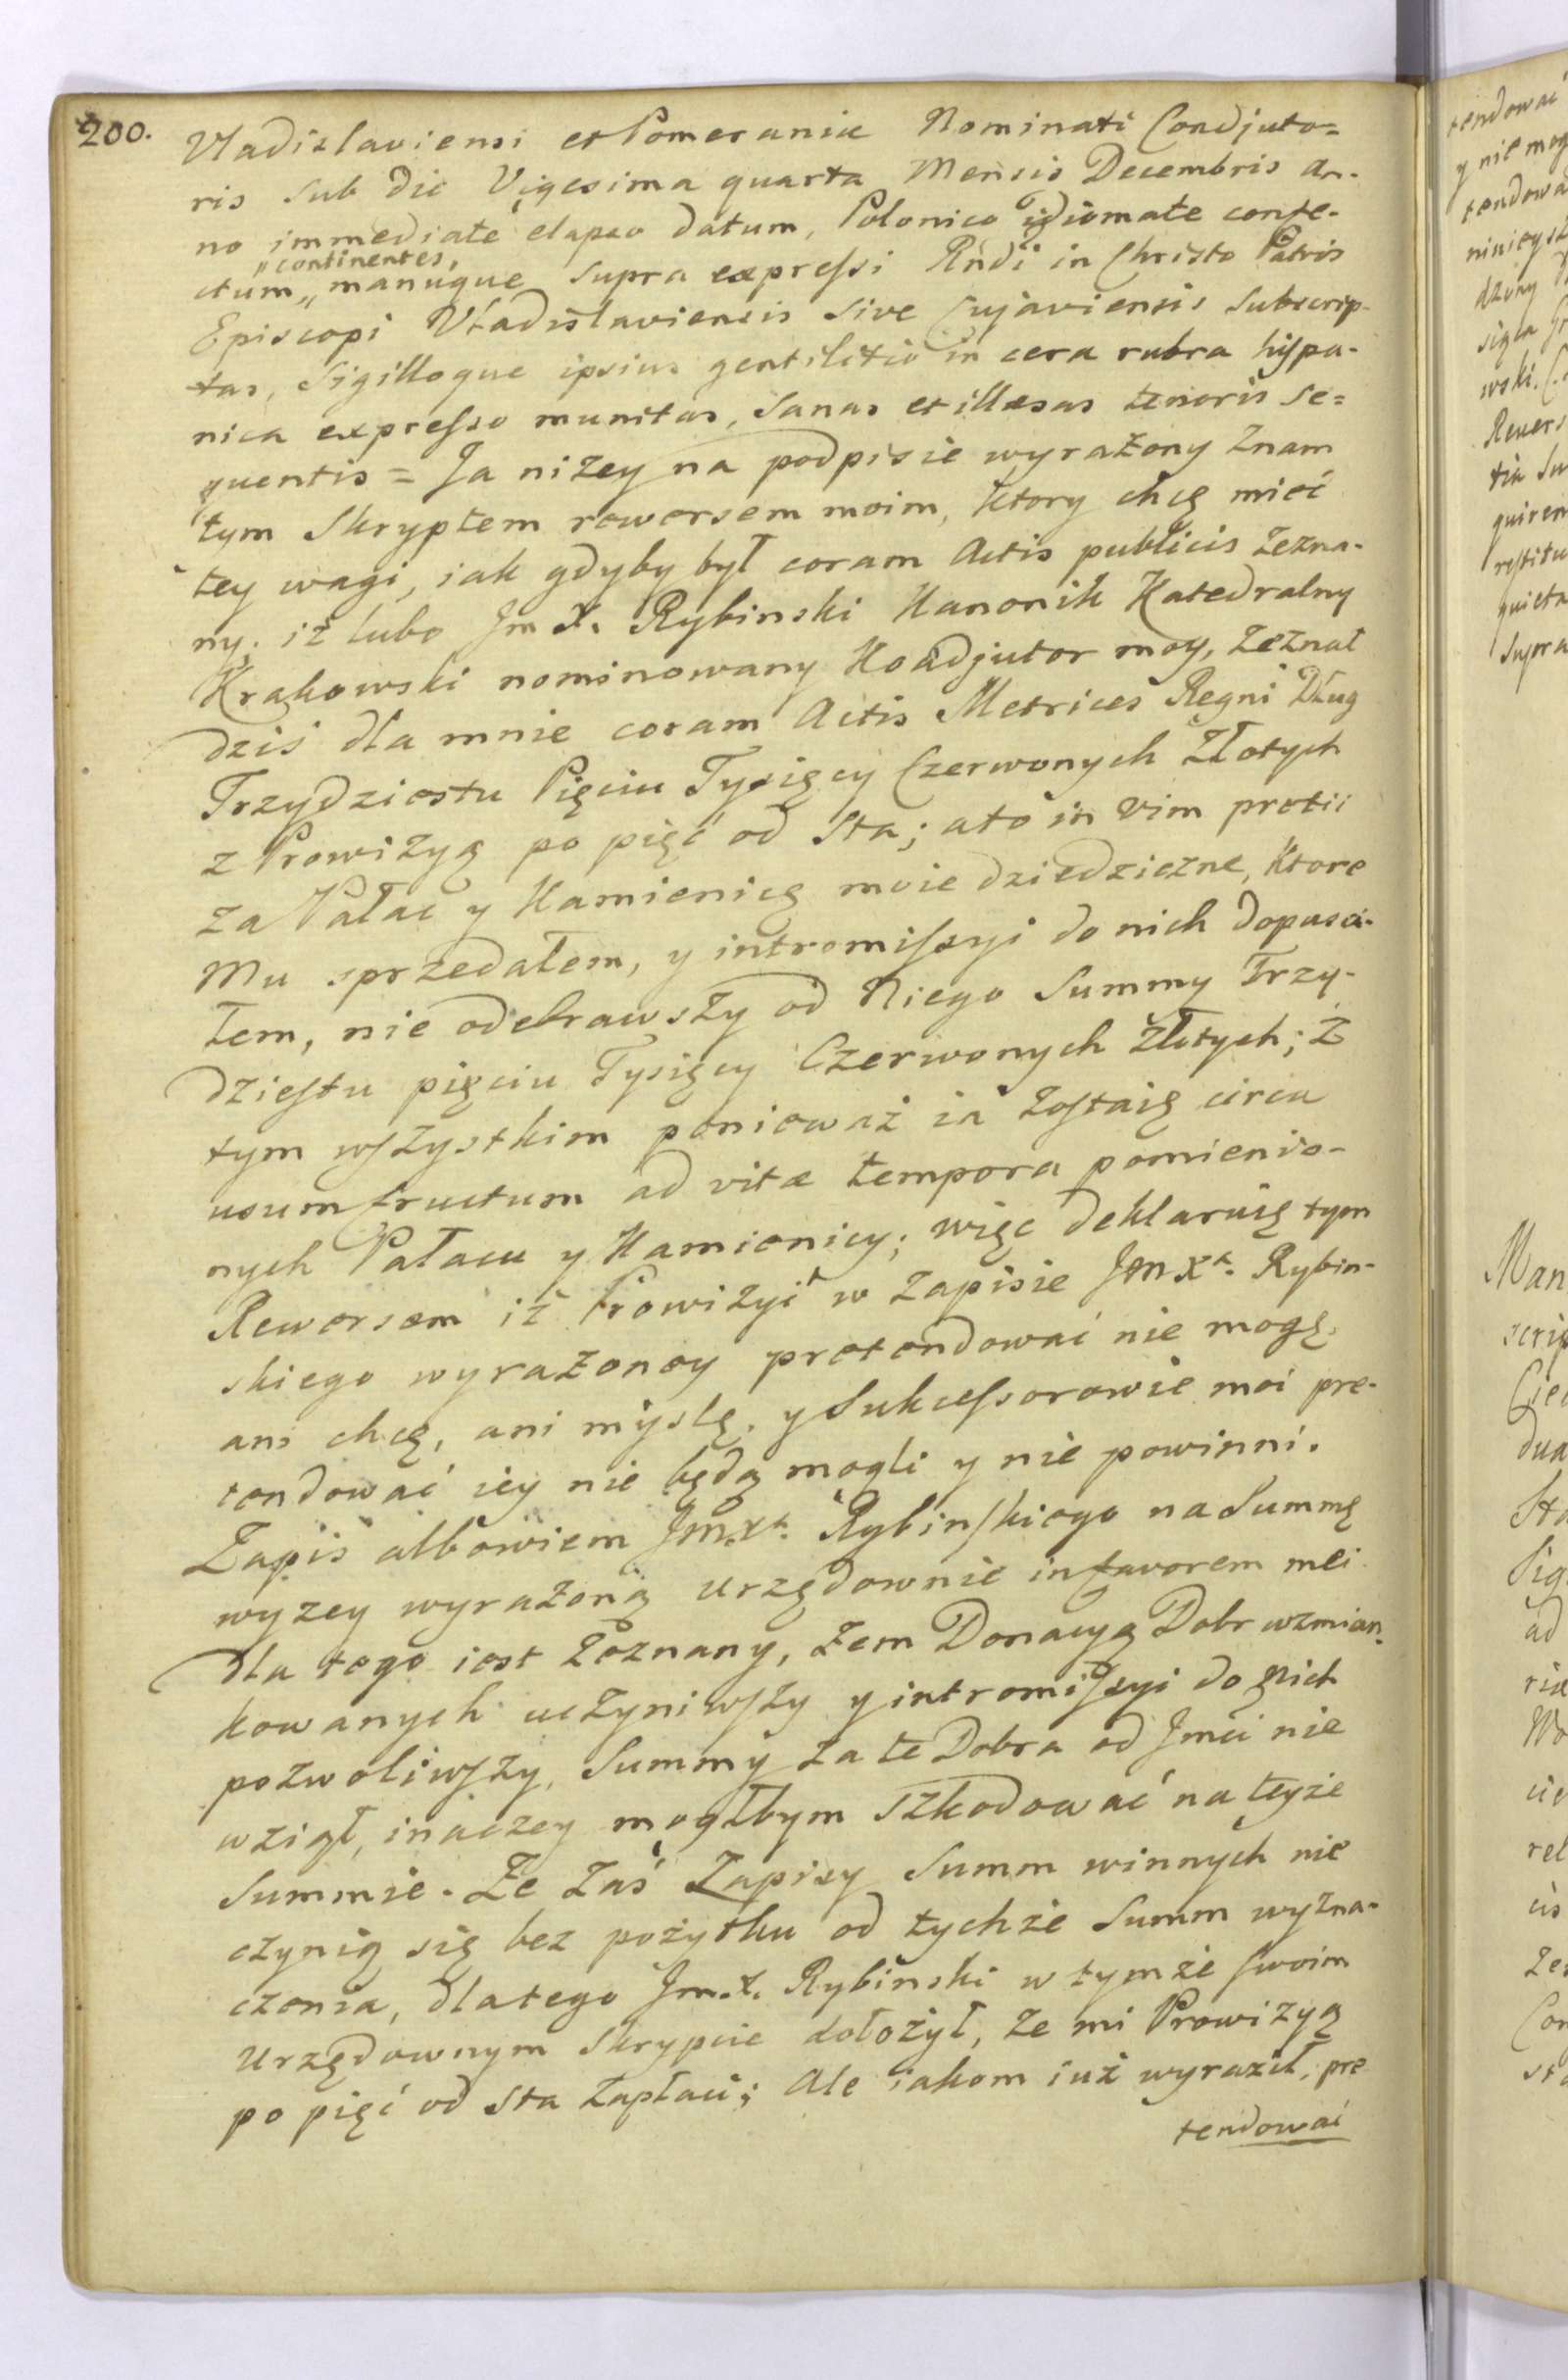 200.
Vladislaviensi et Pomeraniæ Nominati Coadjuto=
ris sub die Vigesima quarta Mensis Decembris An-
no immediate elapso datum, Polonico idiomate confe-
ctum „continentes, manuque supra expressi Rndi in Christo Patris
Episcopi Vladislaviensis sive Cujaviensis subscrip-
tas, Sigilloque ipsius gentilitio in cera rubra hispa-
nica expresso munitas, Sanas et illæsas tenoris se=
quentis = Ja niżey na podpisie wyrażony znam
tym Skryptem rewersem moim, ktory chcę mieć
tey wagi, iak gdyby był coram Actis publicis zezna-
ny; iż lubo Jm X. Rybinski Kanonik Katedralny
Krakowski nominowany Koadjutor moy, zeznał
dziś dla mnie coram Actis Metrices Regni Dług
Trzydziestu Pięciu Tysięcy Czerwonych Złotych
z Prowizyą po pięć od Sta; a to in vim pretii
za Pałac y Kamienicę moie dziedziczne, ktore
Mu sprzedałem, y intromissyi do nich dopuści-
łem, nie odebrawszy od Niego Summy Trzy-
dziestu pięciu Tysięcy Czerwonych Złotych; Z
tym wszystkim ponieważ ia zostaię circa
usumfructum ad vitæ tempora pomienio-
nych Pałacu y Kamienicy; więc deklaruię tym
Rewersem iż Prowizyi w zapisie JmXa. Rybin-
skiego wyrażoney pretendować nie mogę,
ani chcę, ani myslę, y Sukcessorowie moi pre-
tendować iey nie będą mogli y nie powinni.
Zapis albowiem Jm.Xa. Rybinskiego na Summę
wyżey wyrażoną urzędownie in favorem mei
dla tego iest zeznany, żem Donacyą Dobr wzmian-
kowanych uczyniwszy y intromissyi do nich
pozwoliwszy, Summy za te Dobra od Jmci nie
wziął, inaczey mogłbym szkodować na teyże
Summie. Że zaś Zapisy Summ winnych nie
czynią się bez pożytku od tychże Summ wyzna-
czenia, dlatego Jm.X. Rybinski w tymże swoim
Urzędownym Skrypcie dołożył, że mi Prowizyą
po pięć od Sta zapłaci; Ale iakom iuż wyraził, pre
tendować
tendować
y nie mog
tendowa
dzony
wski.
Revers
quiren
restitu
quieta
supra
Man
scrip
dua
Sta
Sig
ad
rel
cis